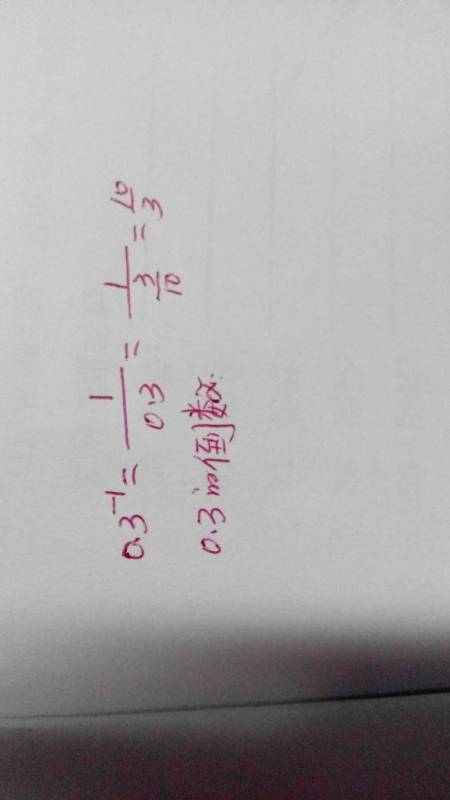 0.3⁻¹ = 1/0.3 = 1/(3/10) = 10/3
0.3的倒数